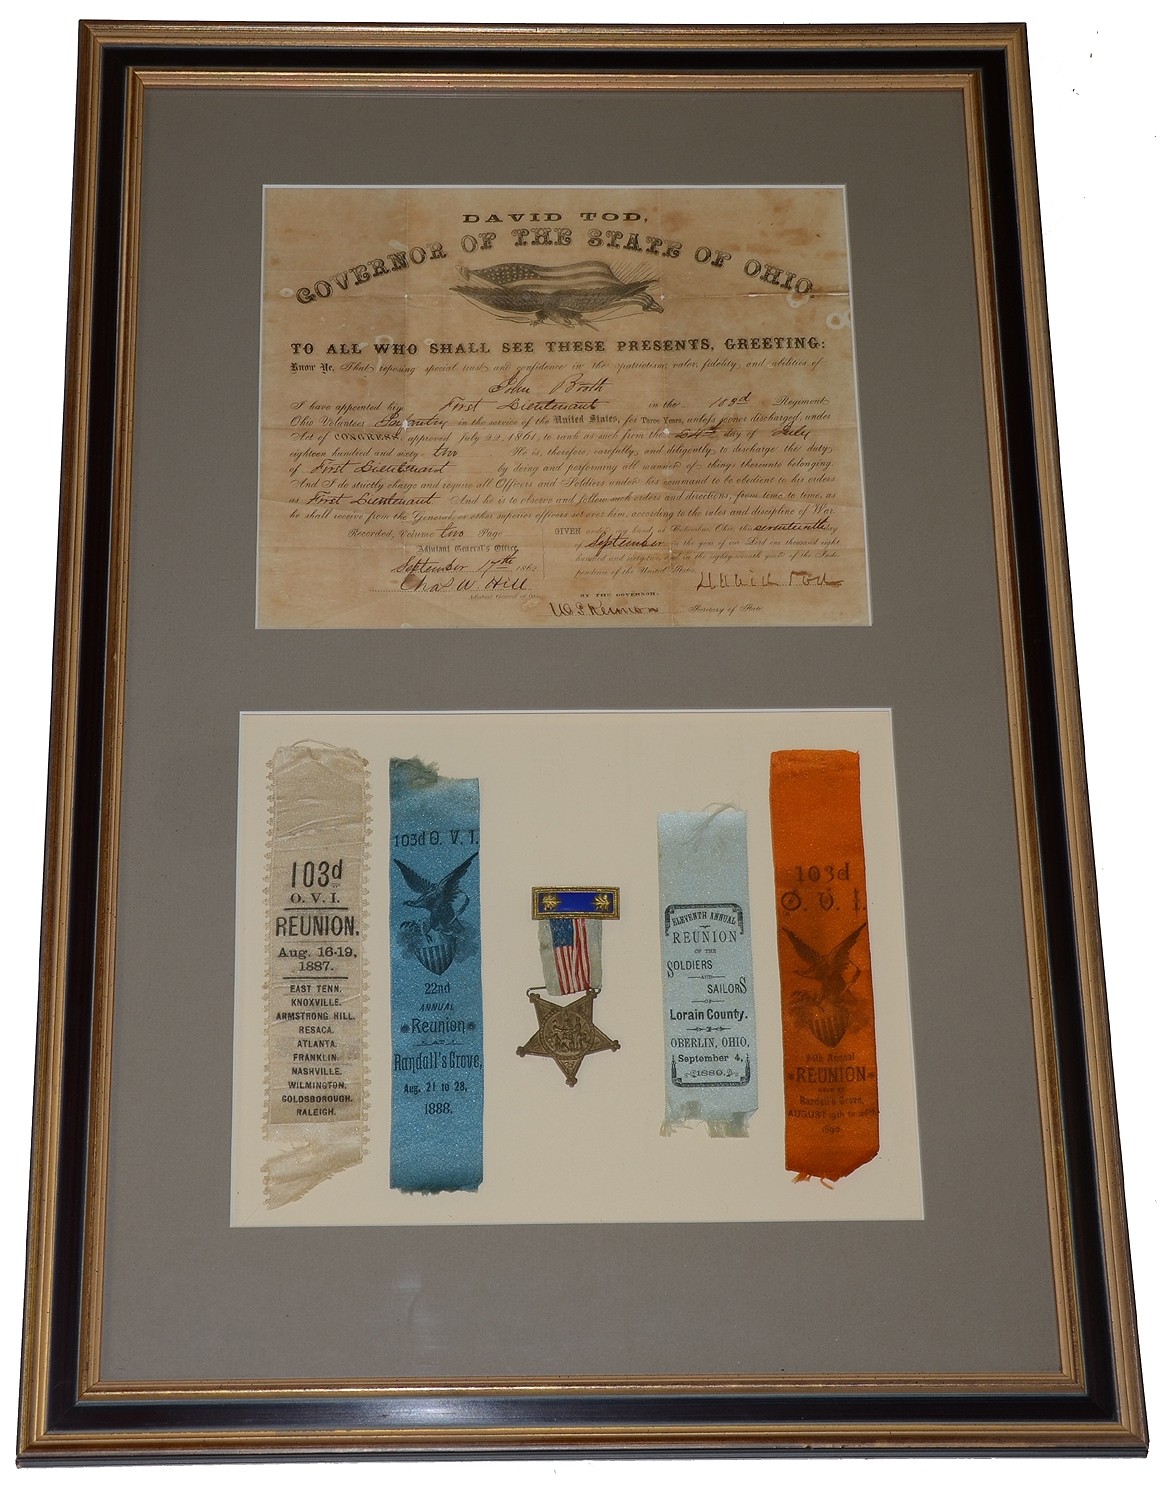 DAVID TOD,
GOVERNOR OF THE STATE OF OHIO.
TO ALL WHO SHALL SEE THESE PRESENTS, GREETING:
Know Ye, That reposing special trust and confidence in the patriotism, valor, fidelity, and abilities of
John
I have appointed him First Lieutenant in the 103d Regiment
Ohio Volunteer Infantry in the service of the United States, for Three Years, unless sooner discharged, under
Act of CONGRESS, approved July 22, 1861, to rank as such from the 24th day of July
eighteen hundred and sixty-two He is, therefore, carefully, and diligently, to discharge the duty
of First Lieutenant by doing and performing all manner of things thereunto belonging.
And I do strictly charge and require all Officers and Soldiers under his command to be obedient to his orders
as First Lieutenant And he is to observe and follow such orders and directions, from time to time, as
he shall receive from the General, or other superior officers set over him, according to the rules and discipline of War.
Recorded, Volume two Page
Adjutant General's Office,
September 17th 1862
Chas W. Hill
Adjutant General of Ohio
GIVEN under my hand, at Columbus, Ohio, this seventeenth day
of September in the year of our Lord one thousand eight
hundred and sixty-two, and in the eighty-seventh year of the Inde-
pendence of the United States.
David Tod
BY THE GOVERNOR:
Secretary of State
103d
O. V. I.
REUNION.
Aug. 16-19,
1887.
EAST TENN.
KNOXVILLE.
ARMSTRONG HILL.
RESACA.
ATLANTA.
FRANKLIN.
NASHVILLE.
WILMINGTON.
GOLDSBOROUGH.
RALEIGH.
103d O. V. I.
22nd
ANNUAL
Reunion
AT
Randall's Grove,
Aug. 21 to 28,
1888.
ELEVENTH ANNUAL
REUNION
OF THE
SOLDIERS
AND
SAILORS
OF
Lorain County.
OBERLIN, OHIO,
September 4,
1889.
103d
O. V. I.
24th Annual
REUNION
Grove,
AUGUST
1890